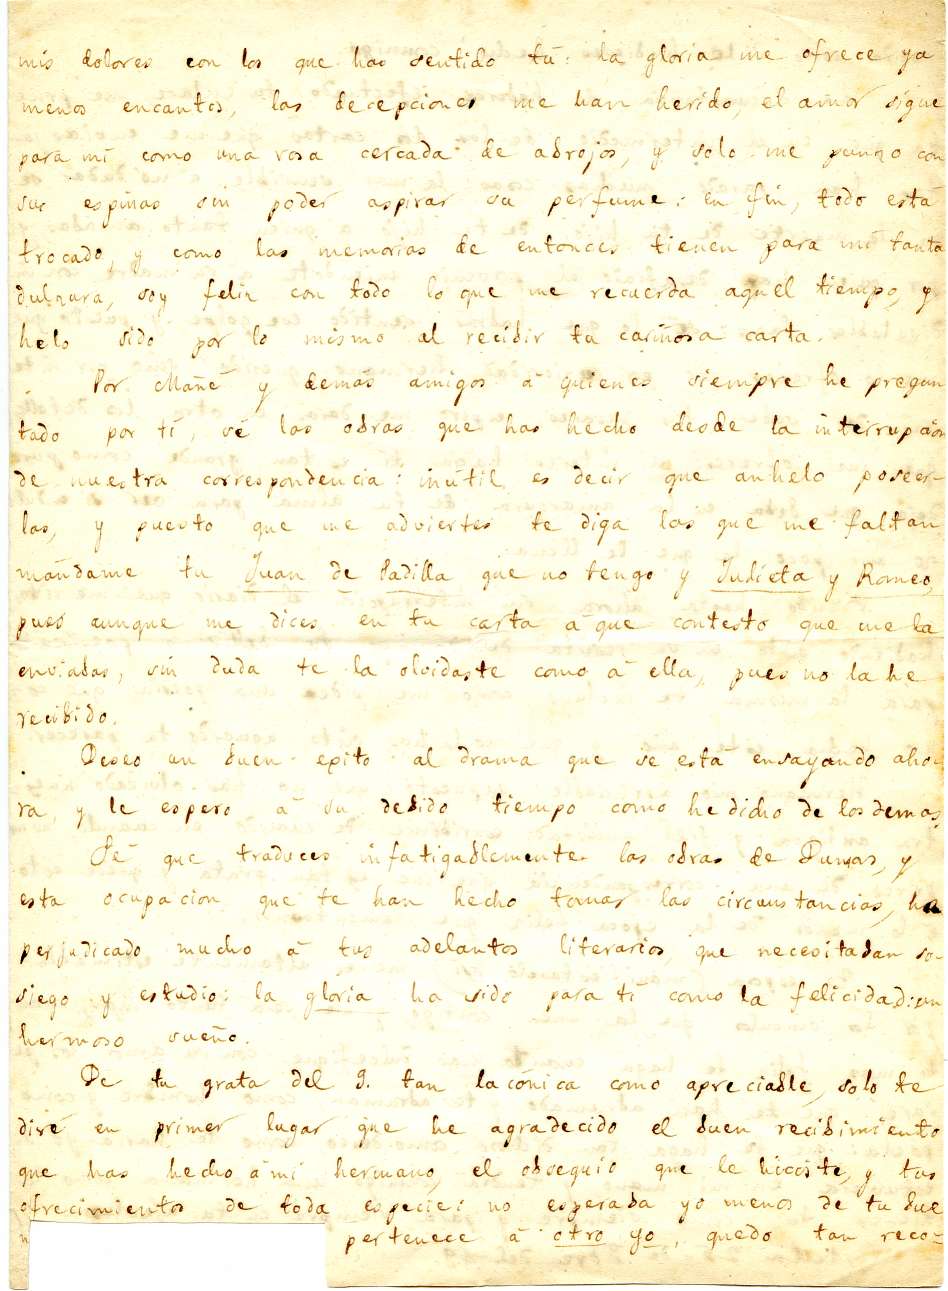 mis dolores con los que has sentido tú: la gloria me ofrece ya
menos encantos, las decepciones me han herido, el amor sigue
para mí como una rosa cercada de abrojos, y solo me punzo con
sus espinas sin podér aspirar su perfume: en fin, todo está
trocado, y como las memorias de entonces tienen para mí tanta
dulzura, soy feliz con todo lo que me recuerda aquel tiempo, y
helo sido por lo mismo al recibir tu cariñosa carta.
Por Mañé y demás amigos á quienes siempre he pregun
tado por tí, sé las obras que has hecho desde la interrupcion
de nuestra correspondencia: inútil es decir que anhelo poseer-
las, y puesto que me adviertes te diga las que me faltan
mándame tu Juan de Padilla que no tengo y Julieta y Romeo,
pues aunque me dices en tu carta á que contesto que me la
enviabas, sin duda te la olvidaste como á ella, pues no la he
recibido.
Deseo un buen exito al drama que se está ensayando aho-
ra, y le espero á su debido tiempo como he dicho de los demas.
Sé que traduces infatigablemente las obras de Dumas, y
esta ocupacion que te han hecho tomar las circunstancias, ha
perjudicado mucho á tus adelantos literarios que necesitaban so-
siego y estudio: la gloria ha sido para tí como la felicidad: un
hermoso sueño.
De tu grata del 9. tan lacónica como apreciable, solo te
diré en primer lugar que he agradecido el buen recibimiento
que has hecho á mi hermano, el obsequio que le hiciste, y tus
ofrecimientos de toda especie: no esperaba yo menos de tu bue
pertenece á otro yo, quedo tan reco-